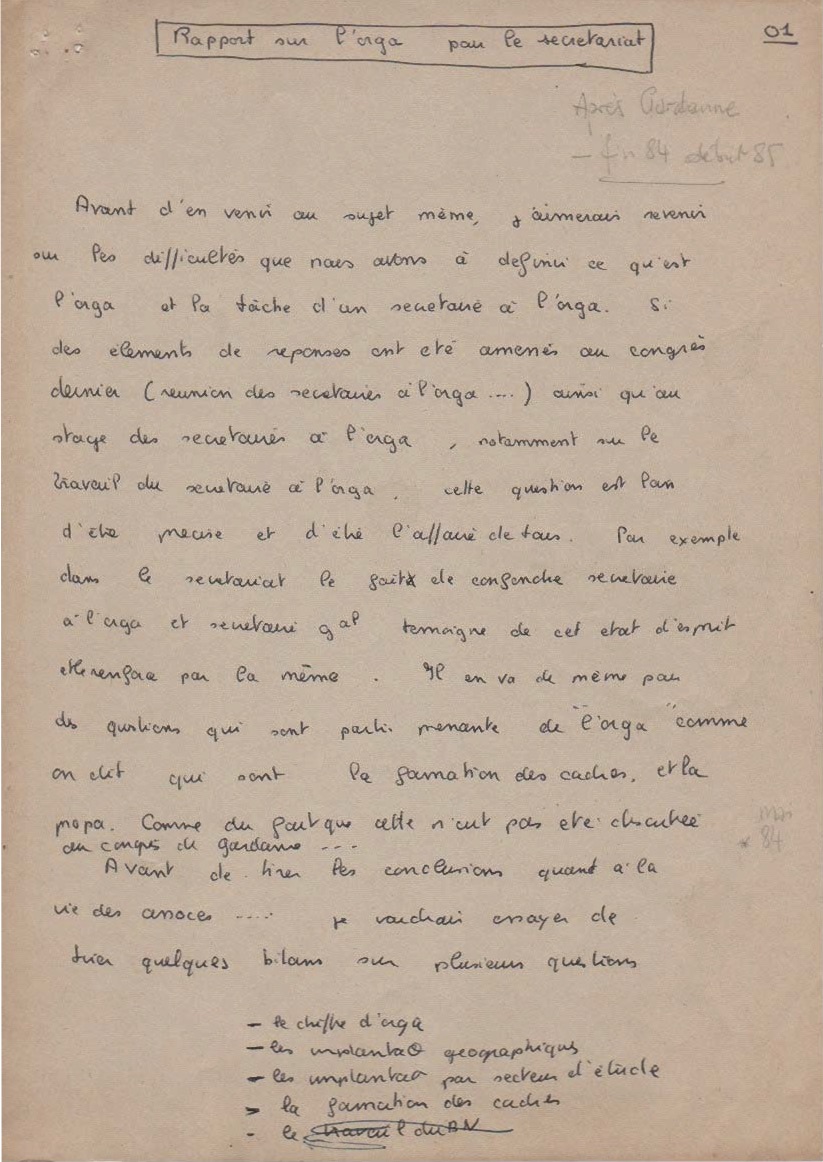 Rapport sur l'orga pour le secretariat
01
Après Gardanne
- fin 84 début 85
Avant d'en venir au sujet même, j'aimerais revenir
sur les difficultés que nous avons à definir ce qu'est
l'orga et la tâche d'un secretaire à l'orga. Si
des élements de reponses ont eté amenés au congrès
dernier (reunion des secretaires à l'orga ....) ainsi qu'au
stage des secretaires à l'orga, notamment sur le
travail du secretaire à l'orga, cette question est loin
d'être precise et d'être l'affaire de tous. Par exemple
dans le secretariat le fait de confondre secretaire
à l'orga et secretaire gal temoigne de cet etat d'esprit
et le renforce par la même. Il en va de même pour
des questions qui sont partie prenante de "l'orga" comme
on dit qui sont la formation des cadres, et la
propa. Comme du fait que cette n'eut pas eté discutée
au congrès de gardanne ---
mars
* 84
Avant de tirer les conclusions quant à la
vie des assoces ..... je voudrais essayer de
tirer quelques bilans sur plusieurs questions
- le chiffre d'orga
- les implantaO geographiques
- les implantaO par secteur d'étude
- la formation des cadres
- le travail du BN